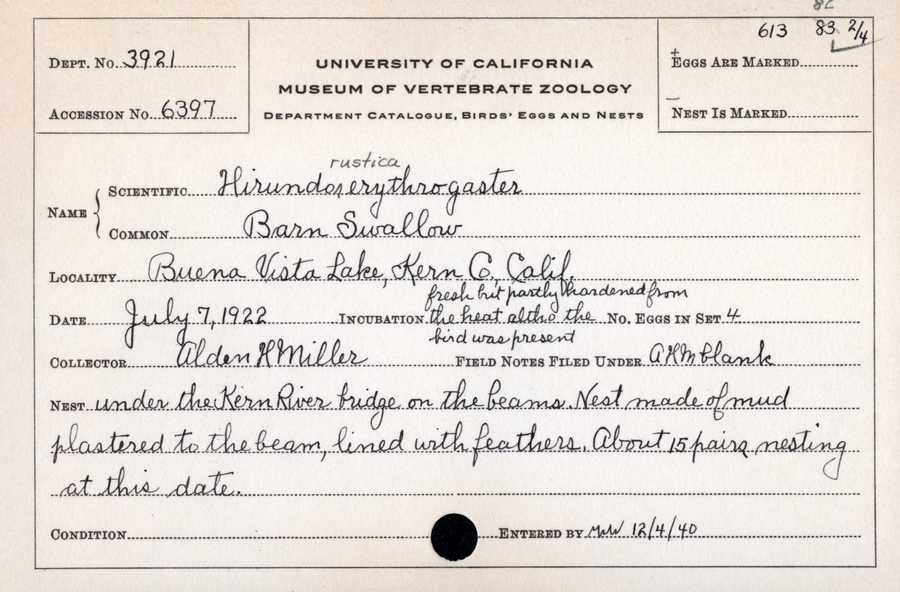 82
613 83 2/4
DEPT. NO. 3921
UNIVERSITY OF CALIFORNIA
+
EGGS ARE MARKED
MUSEUM OF VERTEBRATE ZOOLOGY
ACCESSION NO. 6397
DEPARTMENT CATALOGUE, BIRDS' EGGS AND NESTS
–
NEST IS MARKED
rustica
NAME { SCIENTIFIC Hirundo erythrogaster
COMMON Barn Swallow
LOCALITY Buena Vista Lake, Kern Co, Calif.
fresh but partly hardened from
DATE July 7, 1922 INCUBATION the heat altho the NO. EGGS IN SET 4
bird was present
COLLECTOR Alden H Miller FIELD NOTES FILED UNDER AHM blank
NEST under the Kern River bridge on the beams. Nest made of mud
plastered to the beam, lined with feathers. About 15 pairs nesting
at this date.
CONDITION ENTERED BY 12/4/40